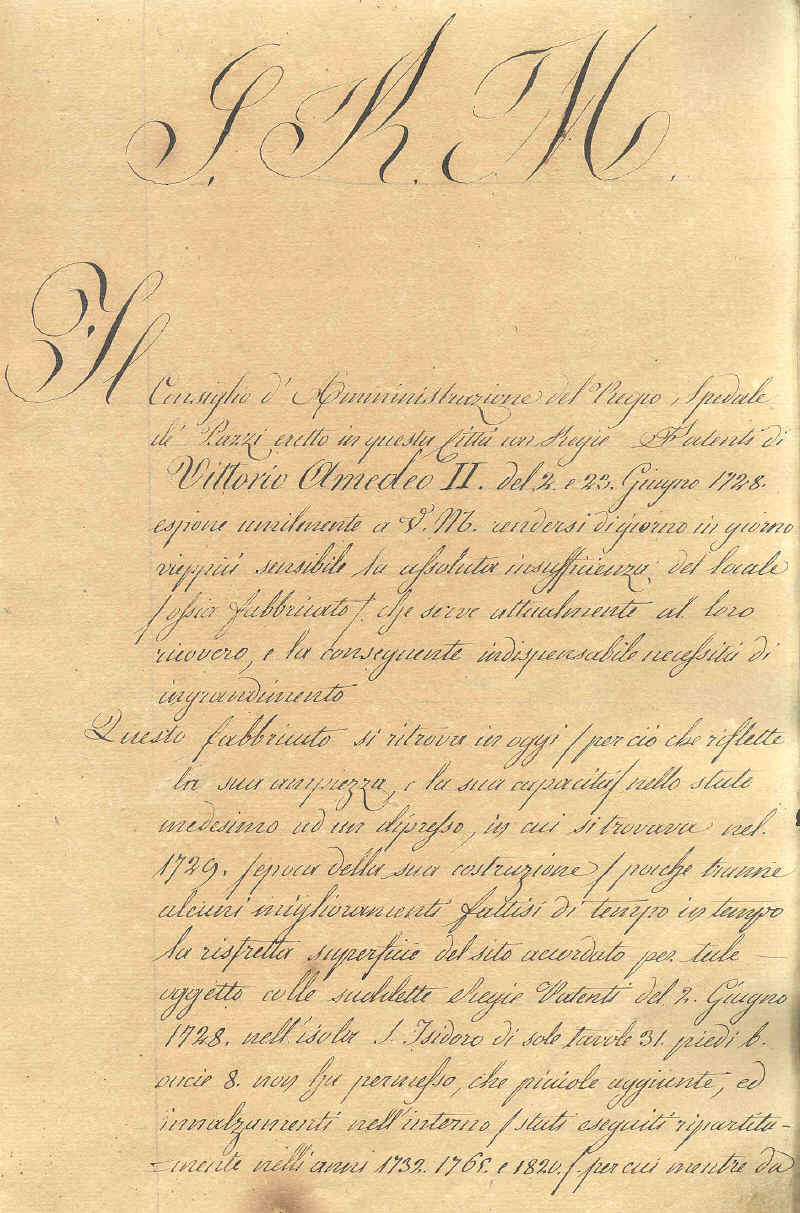 S. R. M.
Il Consiglio d'Amministrazione del Regio Spedale
de' Pazzi eretto in questa Città con Regie Patenti di
Vittorio Amedeo II. del 2. e 23. Giugno 1728.
espone umilmente a V. M. rendersi di giorno in giorno
vieppiù sensibile la assoluta insufficienza del locale
/ ossia fabbricato /. che serve attualmente al loro
ricovero, e la conseguente indispensabile necessità di
ingrandimento
Questo fabbricato si ritrova in oggi / per ciò che riflette
la sua ampiezza, e la sua capacità / nello stato
medesimo ad un dipresso, in cui si trovava nel
1729. / epoca della sua costruzione / poiche tranne
alcuni miglioramenti fattisi di tempo in tempo
la ristretta superficie del sito accordato per tale
oggetto colle suddette Regie Patenti del 2. Giugno
1728. nell'isola S. Isidoro di sole tavole 31. piedi 6.
oncie 8. non ha permesso, che picciole aggiunte, ed
innalzamenti nell'interno / stati eseguiti ripartita-
=mente nelli anni 1732. 1765. e 1820. /. per cui mentre da